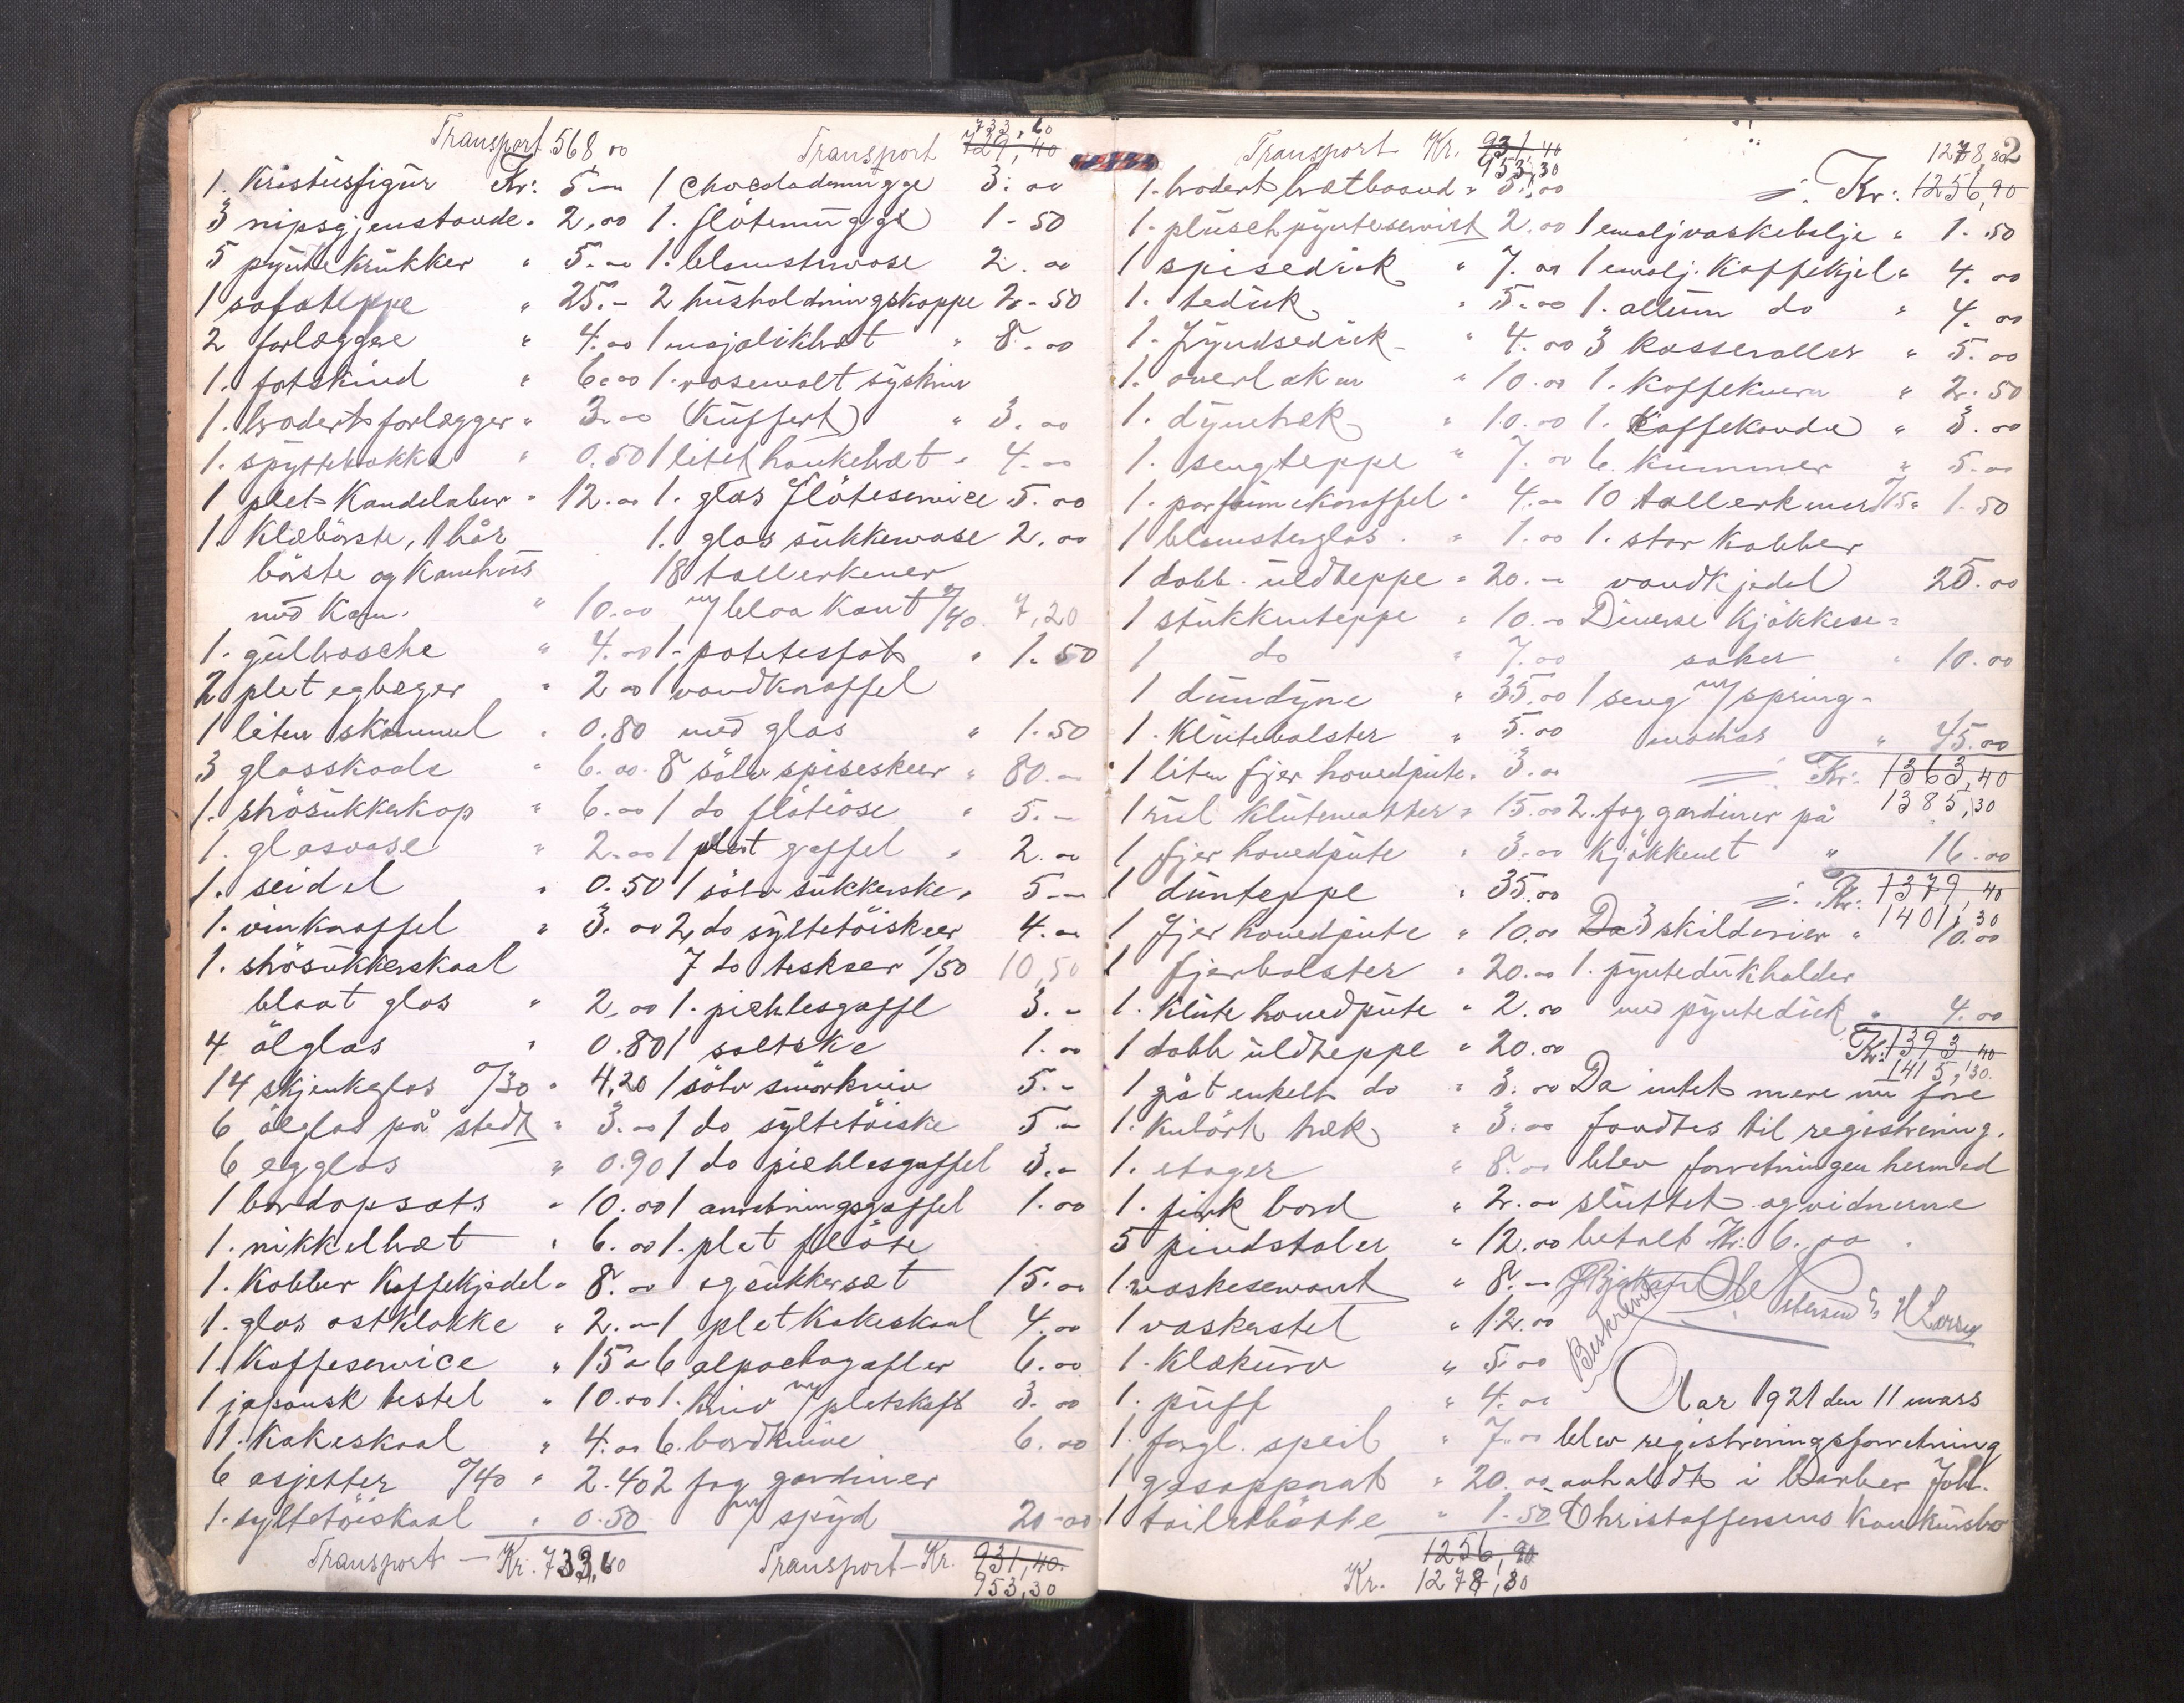 Transport 568 00
1. Kristusfigur Kr: 5 —
3 nipsgjenstande " 2,00
5 pyntekrukker " 5.—
1 sofateppe " 25.—
2 forlæggere " 4.00
1. fotskind " 6.00
1. brodert forlægger " 3.00
1. spyttebakke " 0.50
1 plet Kandelaber " 12.00
1. Klæbörste, 1 hår
börste og Kamhus
med Kam. " 10.00
1. gulbroche " 4.00
2 plet egbæger " 2 00
1 liten skammel " 0.80
3 glasskaale " 6.00
1. strösukkerkop " 6.00
1. glasvase " 2.00
1. seidel " 0.50
1. vinkaraffel " 3.00
1. strösukkerskaal
blaat glas " 2,00
4 ölglas " 0.80
14 skjenkglas a/30 " 4,20
6 ölglas på stedt " 3.00
6 egglas " 0.90
1 bordopsats " 10.00
1. nikkelbret " 6.00
1. Kobber Kaffekjedel " 8.00
1. glas ostklokke " 2.—
1. Kaffeservice " 15 00
1 japansk testel " 10.00
1. Kakeskaal " 4.00
6 asjetter a/40 " 2.40
1. syltetöiskaal " 0.50
Transport — Kr. 733,60
733,60
Transport 729,40
1 chocolademugge 3.00
1. flötemugge 1-50
1. blomstervase 2.00
2 husholdningskoppe 2-50
1 majolikbret " 8.00
1. rosemalt syskrin
(Kuffert) " 3.00
1 litet haukebret " 4.00
1. glas flöteservice 5.00
1. glas sukkervase 2.00
18 tallerkener
m/ blaa Kant a/40. 7,20
1- potetesfat " 1.50
1 vandkaraffel
med glas " 1.50
8 sölv spiseskeer " 80.—
1 do flöteöse " 5.—
1 plet gaffel " 2.00
1 sölv sukkerske " 5 —
2 do syltetöiskeer 4.00
7 do teskeer 1/50 10,50
1. pichlesgaffel 3.-
1 saltske 1.00
1 sölv smörkniv 5.-
1 do syltetöiske 5.—
1 do pichlesgaffel 3.-
1 anretningsgaffel 1.00
1. plet flöte
og sukkersæt 15.00
1 plet Kakeskaal 4.00
6 alpaccagafler 6.00
1. kniv m/ pletskaft 3.00
6. bordknive 6.00
2 fag gardiner
m/ spyd 20-00
Transport - Kr. 931,40.
953,30
Transport Kr. 931 40
953,30
1. brodert bretbaand " 5.00
1. pluschpynteserviet 2.00
1 spiseduk " 7.00
1. teduk " 5.00
1. fryndseduk " 4.00
1. overlaken " 10.00
1. dynetræk " 10.00
1. sengteppe " 7.00
1. parfumekaraffel " 4.00
1 blomsterglas " 1.00
1 dobb. uldteppe " 20.—
1 stukkenteppe " 10.00
1 do " 7.00
1 dundyne " 35.00
1. Klutebolster " 5.00
1 liten fjer hovedpute " 3.00
1 uul Klutematter " 15.00
1 fjer hovedpute " 3.00
1 dunteppe " 35.00
1 fjer hovedpute " 10.00
1 fjerbolster " 20.00
1. Klute hovedpute " 2.00
1 dobb uldteppe " 20.00
1 gåt enkelt do " 3.00
1. Kulört træk " 3.00
1. etager " 8.00
1. pirk bord " 2.00
5 pindstoler " 12.00
1. vaskeservant " 8.—
1 vaskestel " 12.00
1. Klækurv " 5.00
1. puff " 4.00
1. forgl. speil " 7.00
1 gasapparat " 20.00
1 toiletbötte " 1.50
1256,90
Kr. 1278,80
2
1278,80
Kr: 1256,90
1 emaljvaskebalje " 1.50
1 emalj. Kaffekjel " 4.00
1. allum do " 4.00
3 Kasseroller " 5.00
1. Kaffekvern " 2.50
1. Kaffekande " 3.00
6. Kummer " 5.00
10 tallerkener a/15 " 1.50
1. stor Kobber
vandkjedel 25.00
Diverse Kjökkese=
saker " 10.00
1 seng m/ spring-
madras " 45.00
Kr: 1363,40
1385,30
2. fag gardiner på
Kjökkenet " 16.00
Kr: 1379,40
1401,30
Da 3 skilderier " 10.00
1. pyntedukholder
med pynteduk " 4.00
Kr: 1393 40
1415,30.
Da intet mere nu fore
fandtes til registrering.
blev forretningen hermed
sluttet og vidnerne
betalt Kr: 6.00.
H Larsen
Beskrevet
Aar 1921 den 11 mars
blev registreringsforretning
avholdt i Barber Joh.
Christoffersens Konkursbo